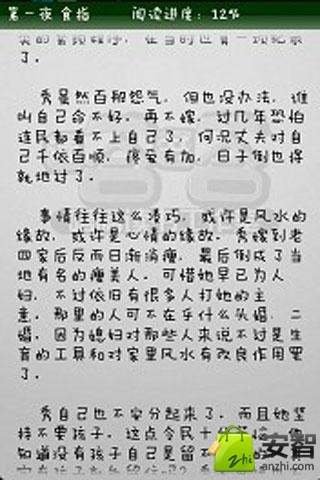 第一夜 食指 阅读进度：12%
在当时也有一
了.
秀虽然百般怨气，但也没办法，谁
叫自己命不好，再不嫁，过几年恐怕
连民都看不上自己了，何况丈夫对自
己千依百顺，疼爱有加，日子倒也将
就地过了.
事情往往这么凑巧，或许是风水的
缘故，或许是心情的缘故，秀嫁到老
四家后反而日渐消瘦，最后倒成了当
地有名的瘦美人，可惜她早已为人
妇，不过依旧有很多人打她的主
意，那里的人可不在乎什么头婚，二
婚，因为媳妇对那些人来说不过是生
育的工具和对家里风水有改良作用罢
了.
秀自己也不安分起来了，而且她坚
持不要孩子，这点令民十分
知道没有孩子自己是留不
安智
zhi
anzhi.com